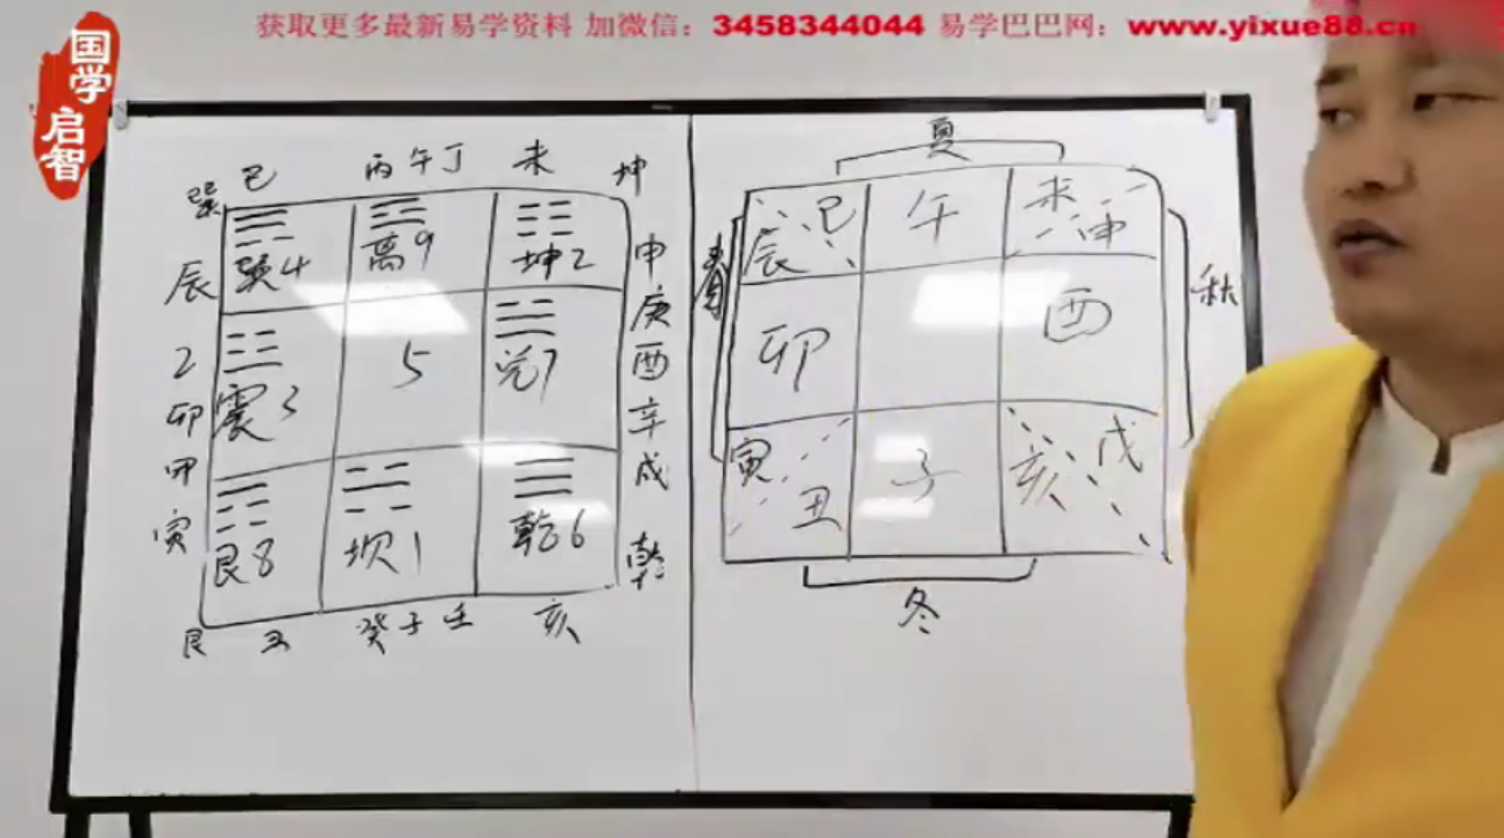 获取更多最新易学资料 加微信：3458344044 易学巴巴网：www.yixue88.cn
国学
启智
巽 巳 丙午丁 未 坤
巽4 离9 坤2
辰 申
庚
乙 震3 5 兑7 酉
卯 辛
甲 戌
寅 艮8 坎1 乾6 乾
艮 丑 癸子壬 亥
夏
辰 巳 午 未 申
春 卯 酉 秋
寅 丑 子 亥 戌
冬